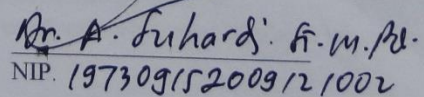 Dr. A. Suhardi. St. M. Pd.
NIP. 197309152009121002